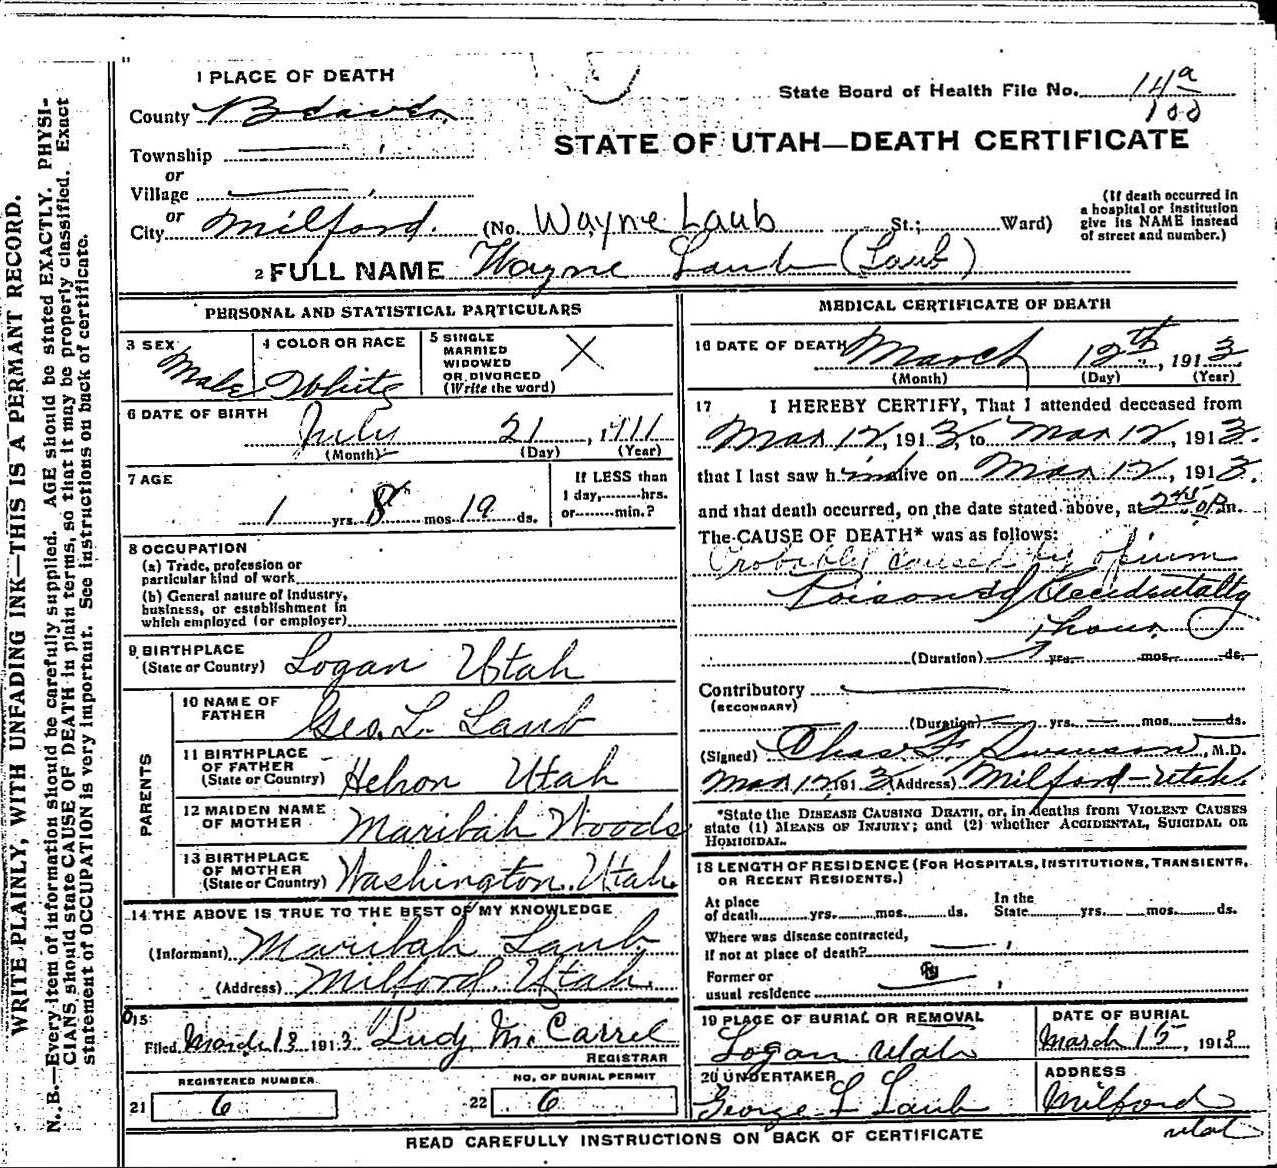 WRITE PLAINLY, WITH UNFADING INK—THIS IS A PERMANT RECORD.
N. B.—Every item of information should be carefully supplied. AGE should be stated EXACTLY. PHYSI-
CIANS should state CAUSE OF DEATH in plain terms, so that it may be properly classified. Exact
statement of OCCUPATION is very important. See instructions on back of certificate.
1 PLACE OF DEATH
County Beaver
State Board of Health File No. 14a
100
STATE OF UTAH—DEATH CERTIFICATE
Township
or
Village
or
City Milford. (No. Wayne Laub St.; Ward)
(If death occurred in
a hospital or institution
give its NAME instead
of street and number.)
2 FULL NAME Wayne Laub (Laub)
PERSONAL AND STATISTICAL PARTICULARS
3 SEX Male
4 COLOR OR RACE White
5 SINGLE
MARRIED
WIDOWED
OR DIVORCED
(Write the word) X
6 DATE OF BIRTH
July 21, 1911
(Month) (Day) (Year)
7 AGE
1 yrs. 8 mos. 19 ds.
If LESS than
1 day, hrs.
or min.?
8 OCCUPATION
(a) Trade, profession or
particular kind of work
(b) General nature of industry,
business, or establishment in
which employed (or employer)
9 BIRTHPLACE
(State or Country) Logan Utah
PARENTS
10 NAME OF
FATHER Geo. L. Laub
11 BIRTHPLACE
OF FATHER
(State or Country) Hebron Utah
12 MAIDEN NAME
OF MOTHER Maribah Woods
13 BIRTHPLACE
OF MOTHER
(State or Country) Washington. Utah.
14 THE ABOVE IS TRUE TO THE BEST OF MY KNOWLEDGE
(Informant) Maribah Laub
(Address) Milford. Utah.
15
Filed March 13 1913 Ludy McCarrel
REGISTRAR
REGISTERED NUMBER
21 6
NO. OF BURIAL PERMIT
22 6
MEDICAL CERTIFICATE OF DEATH
16 DATE OF DEATH March 12th, 1913
(Month) (Day) (Year)
17 I HEREBY CERTIFY, That I attended deceased from
Mar 12, 1913, to Mar 12, 1913.
that I last saw him alive on Mar 12, 1913.
and that death occurred, on the date stated above, at 245 P.m.
The CAUSE OF DEATH* was as follows:
Probably caused by opium
Poisoned Accidentally
1 hour
(Duration) yrs. mos. ds.
Contributory
(SECONDARY)
(Duration) yrs. mos. ds.
(Signed) Chas F. Swanson, M.D.
Mar 12, 1913 (Address) Milford - Utah.
*State the DISEASE CAUSING DEATH, or, in deaths from VIOLENT CAUSES
state (1) MEANS OF INJURY; and (2) whether ACCIDENTAL, SUICIDAL OR
HOMICIDAL.
18 LENGTH OF RESIDENCE (FOR HOSPITALS, INSTITUTIONS, TRANSIENTS,
OR RECENT RESIDENTS.)
At place
of death yrs. mos. ds.
In the
State yrs. mos. ds.
Where was disease contracted,
if not at place of death?
Former or
usual residence
19 PLACE OF BURIAL OR REMOVAL
Logan Utah
DATE OF BURIAL
March 15, 1913
20 UNDERTAKER
George L Laub
ADDRESS
Milford
Utah
READ CAREFULLY INSTRUCTIONS ON BACK OF CERTIFICATE